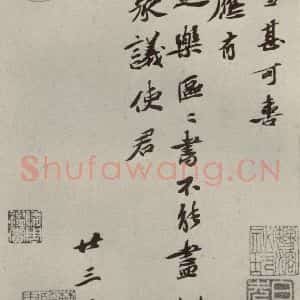 甚可喜
應有
樂區〻書不能盡
議使君
廿三
Shufawang.CN